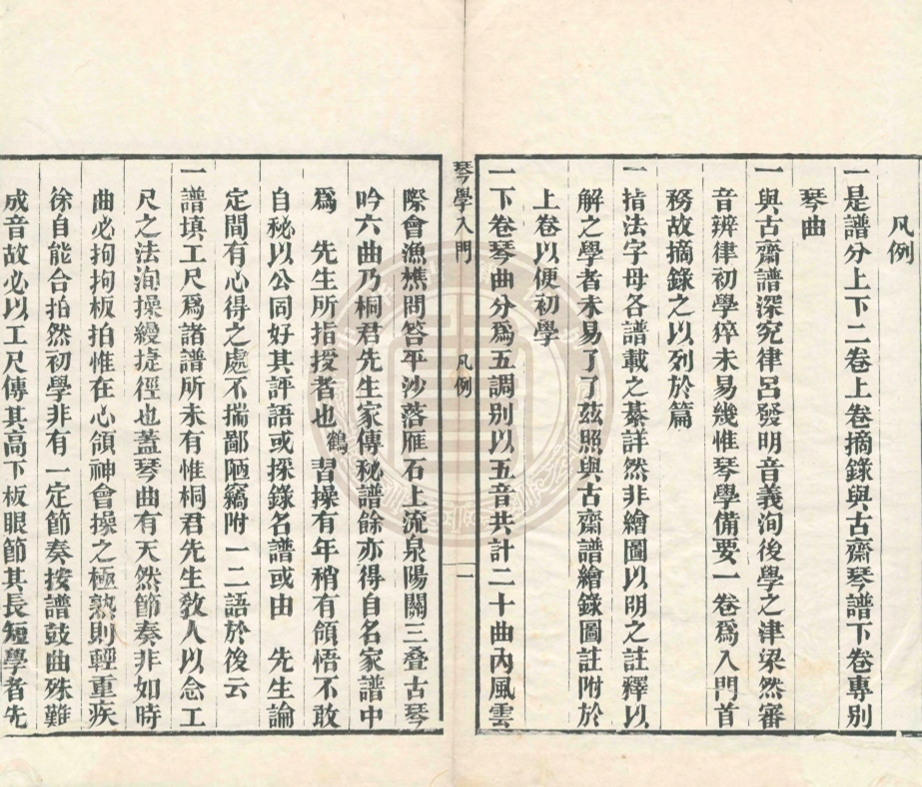 凡例
一是譜分上下二卷上卷摘錄與古齋琴譜下卷專別
琴曲
一與古齋譜深究律呂發明音義洵後學之津梁然審
音辨律初學猝未易幾惟琴學備要一卷爲入門首
務故摘錄之以列於篇
一指法字母各譜載之綦詳然非繪圖以明之註釋以
解之學者未易了了茲照與古齋譜繪錄圖註附於
上卷以便初學
一下卷琴曲分爲五調別以五音共計二十曲內風雲
琴學入門 凡例 一
際會漁樵問答平沙落雁石上流泉陽關三叠古琴
吟六曲乃桐君先生家傳秘譜餘亦得自名家譜中
爲 先生所指授者也鶴習操有年稍有領悟不敢
自秘以公同好其評語或採錄名譜或由 先生論
定間有心得之處不揣鄙陋竊附一二語於後云
一譜填工尺爲諸譜所未有惟桐君先生敎人以念工
尺之法洵操縵捷徑也蓋琴曲有天然節奏非如時
曲必拘拘板拍惟在心領神會操之極熟則輕重疾
徐自能合拍然初學非有一定節奏按譜鼓曲殊難
成音故必以工尺傳其高下板眼節其長短學者先